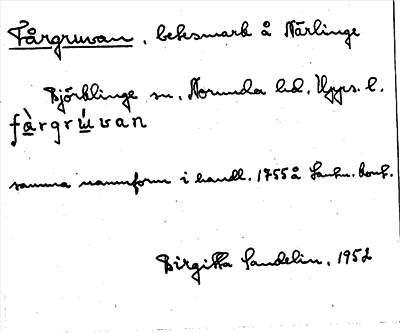 Fårgruvan, beksmark å Närlinge
Björklinge sn, Norunda hd, Upps. l.
fàrgrúvan
samma namnform i handl. 1755 å Lantm. kont.
Birgitta Sandelin, 1952